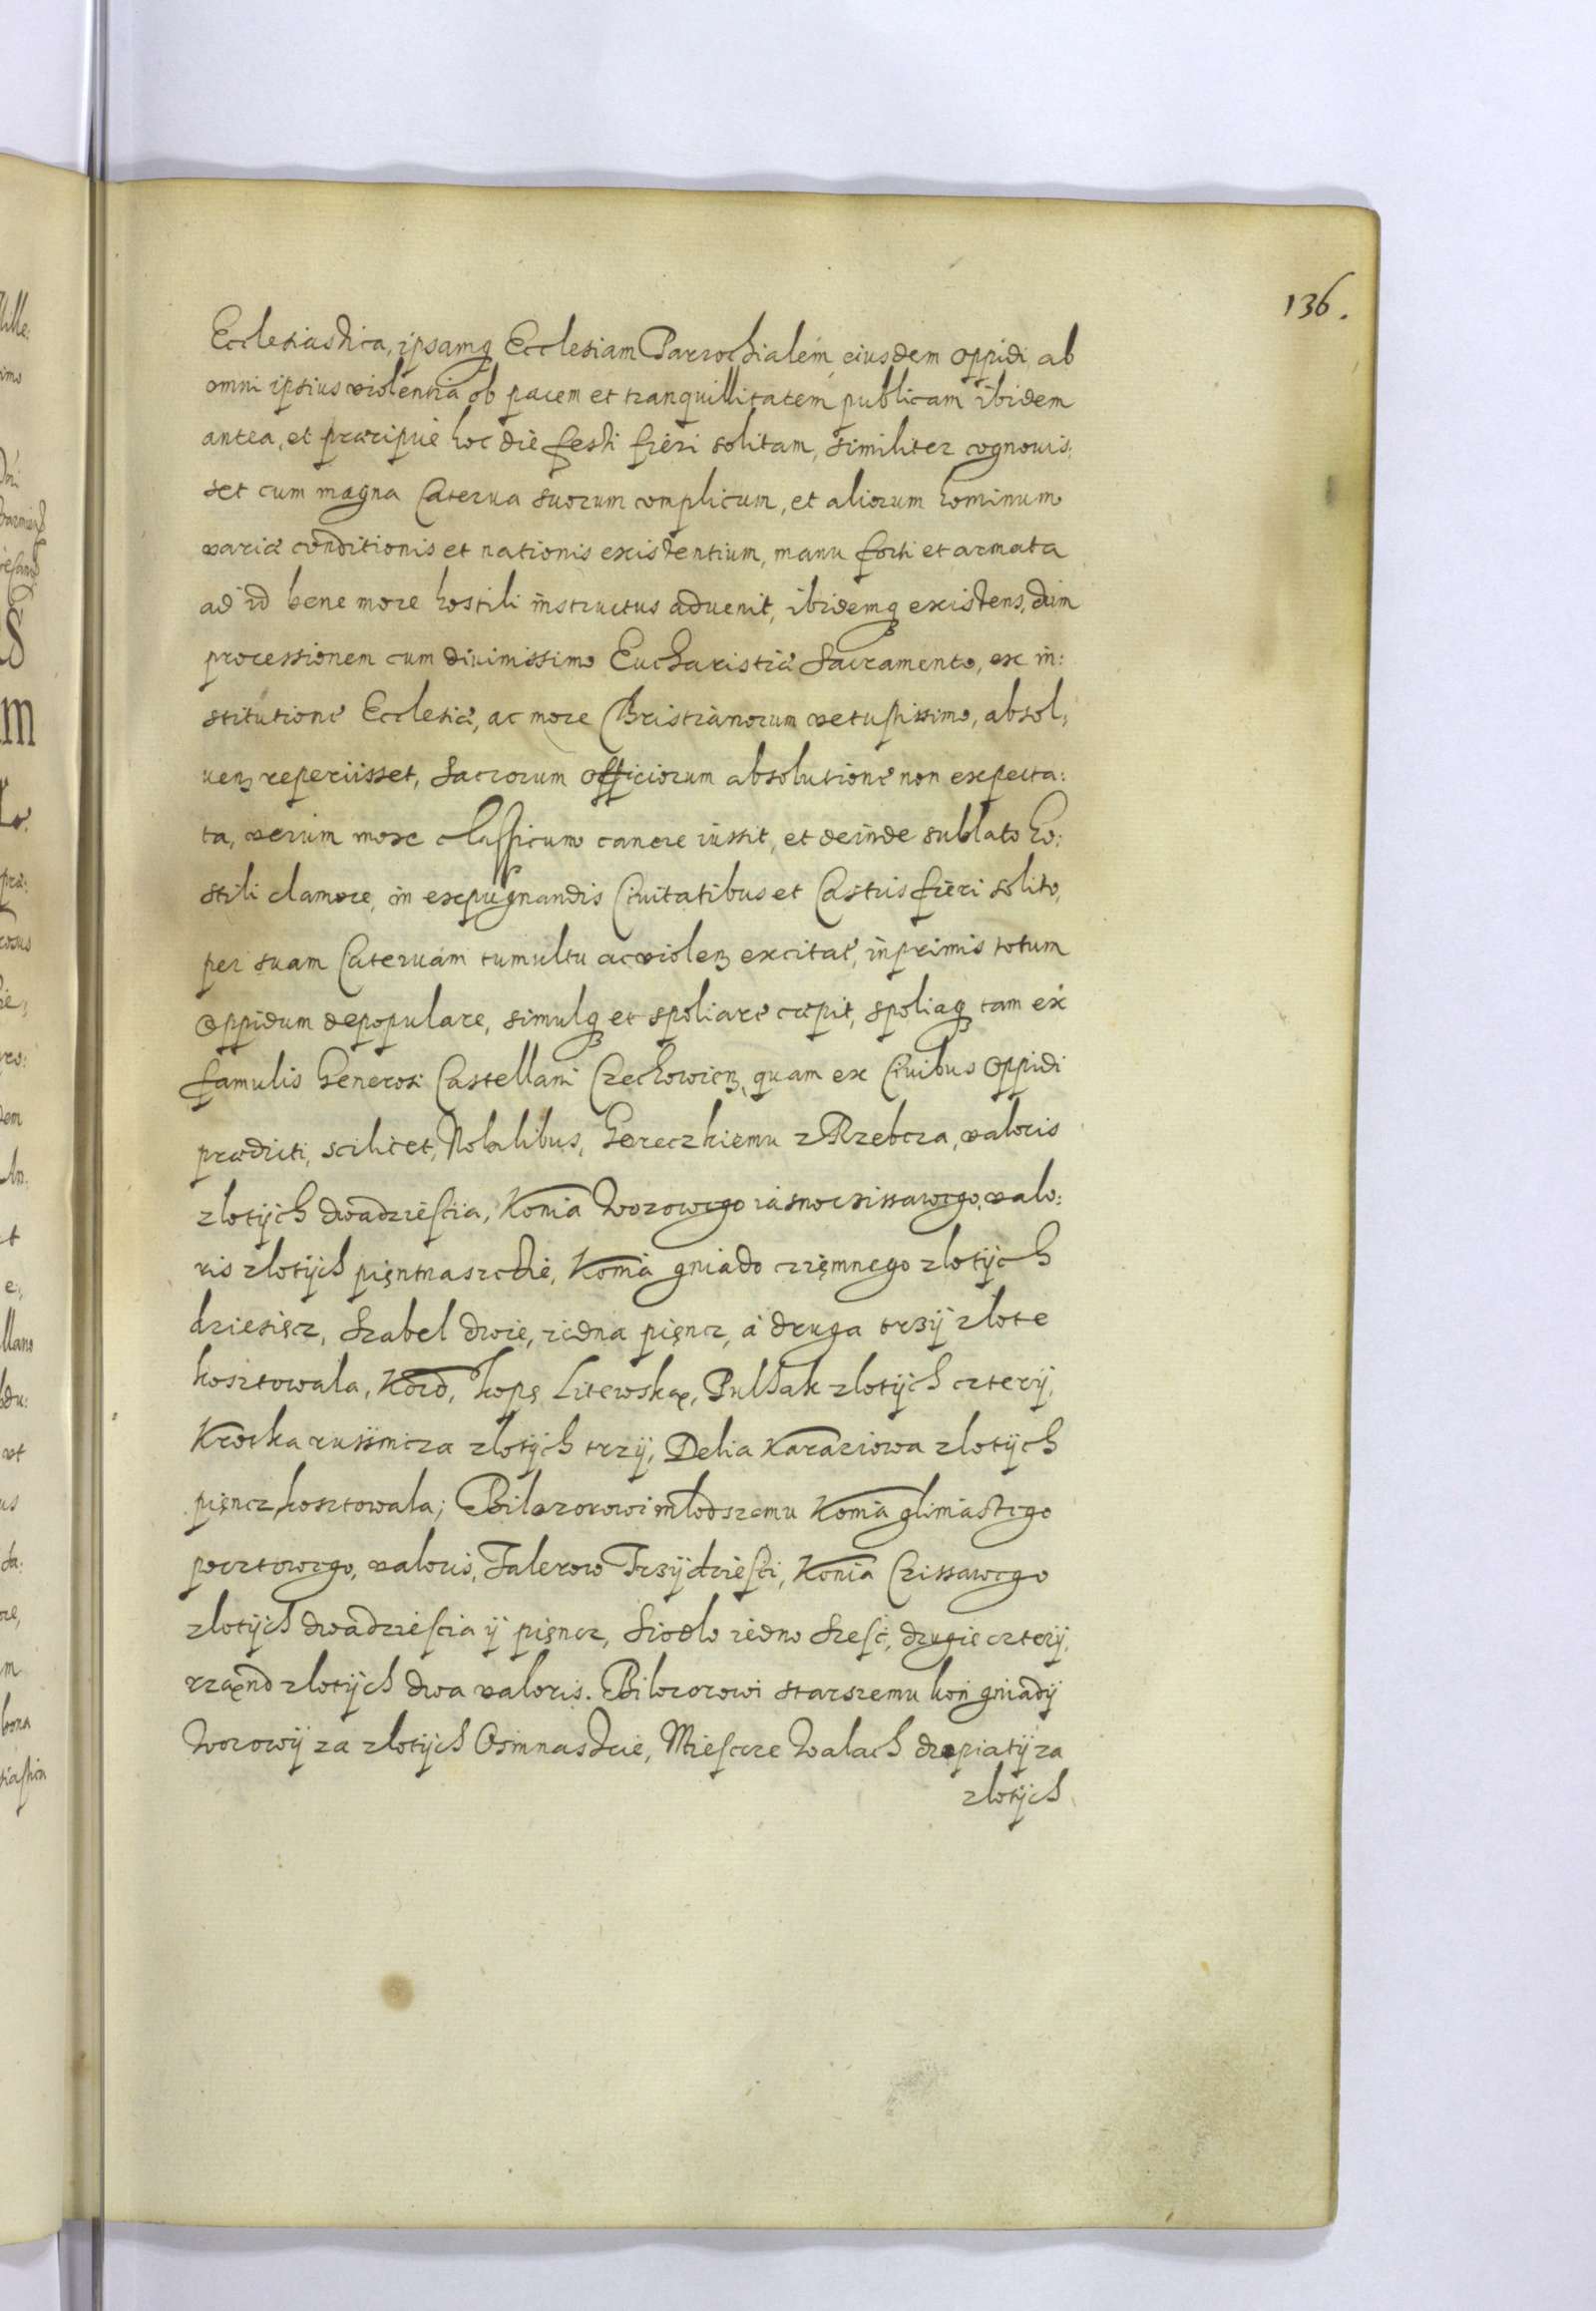 136.
Ecclesiastica, ipsamq Ecclesiam Parrochialem eiusdem oppidi ab
omni ipsius violentia ob pacem et tranquillitatem publicam ibidem
antea, et præcipuè hoc die festi fieri solitam, similiter cognouis:
set cum magna Caterua suorum complicum, et aliorum hominum
variæ conditionis et nationis existentium, manu forti et armata
ad id bene more hostili instructus aduenit, ibidemq existens, dum
processionem cum diuinissimo Eucharistiæ Sacramento, ex in:
stitutione Ecclesiæ, ac more Christianorum vetustissimo, absol,
uenz reperiisset, Sacrorum officiorum absolutione non expecta:
ta, verum mox classicum canere iussit, et deinde sublato ho:
stili clamore, in expugnandis Ciuitatibus et Castris fieri solito,
per suam Cateruam tumultu ac violenz excitat, inprimis totum
oppidum depopulare, simulq et spoliare cæpit, spoliaq tam ex
famulis Generosi Castellani Czechowienz, quam ex Ciuibus oppidi
prædicti, scilicet, Nobilibus, Gereczkiemu z Rzebcza, valoris
zlotÿch dwadziesciia, Konia Wozowego iasnocisssawego, valo:
ris zlotÿch pięntnascźie, Konia gniado cziemnego zlotÿch
dziesięcz, Szabel dwie, iedna pięncz, á druga trzÿ zlote
kosztowala, Kord, kopę Litewską, Pulhak zlotÿch czterÿ,
Krotka rusznicza zlotÿch trzÿ, Delia Karaziowa zlotÿch
pięncz kosztowala; Bilozorowi mlodszemu Konia gliniastego
pocztowego, valoris, Talerow Trzÿdziesci, Konia Czissawego
zlotÿch dwadziescia ÿ pięncz, Siodlo iedno Szesć, drugie czterÿ,
rząnd zlotÿch dwa valoris. Bilozorowi starszemu koń gniadÿ
Wozowÿ za zlotÿch Osmnascie, Miescze Walach dropiatÿ za
zlotÿch